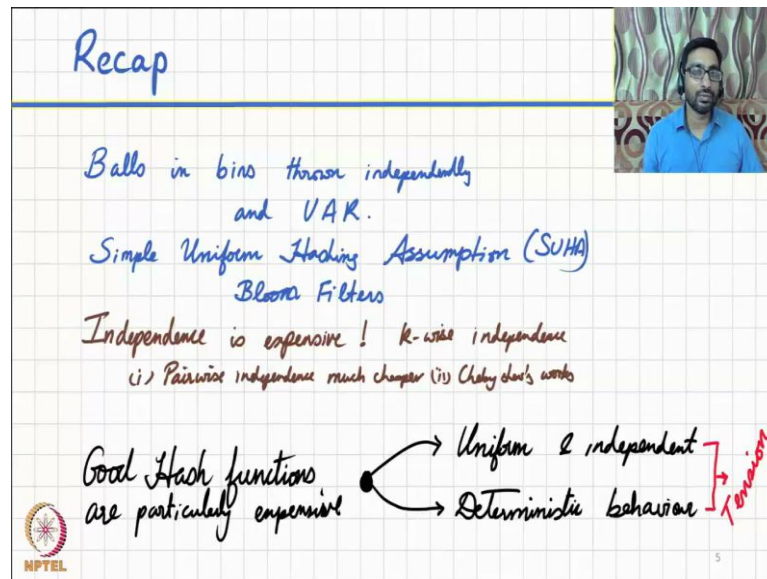 Recap
Balls in bins thrown independently
and UAR.
Simple Uniform Hashing Assumption (SUHA)
Bloom Filters
Independence is expensive! k-wise independence
(i) Pairwise independence much cheaper (ii) Chebyshev's works
Good Hash functions
are particularly expensive
Uniform & independent
Deterministic behaviour
Tension
NPTEL
5